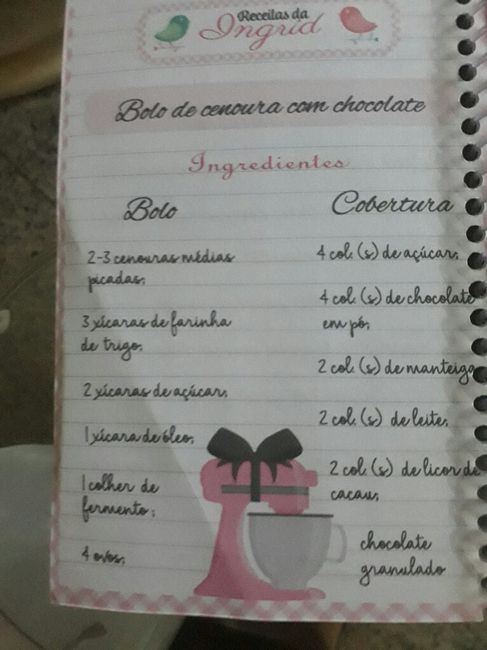 Receitas da
Ingrid
Bolo de cenoura com chocolate
Ingredientes
Bolo
2-3 cenouras médias
picadas;
3 xícaras de farinha
de trigo;
2 xícaras de açúcar;
1 xícara de óleo;
1 colher de
fermento;
4 ovos;
Cobertura
4 col. (s) de açúcar;
4 col. (s) de chocolate
em pó;
2 col. (s) de manteiga
2 col. (s) de leite;
2 col. (s) de licor de
cacau;
chocolate
granulado